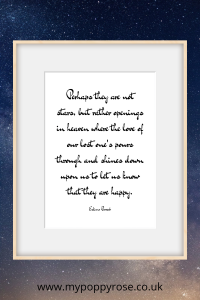 Perhaps they are not
stars, but rather openings
in heaven where the love of
our lost one's pours
through and shines down
upon us to let us know
that they are happy.
www.mypoppyrose.co.uk